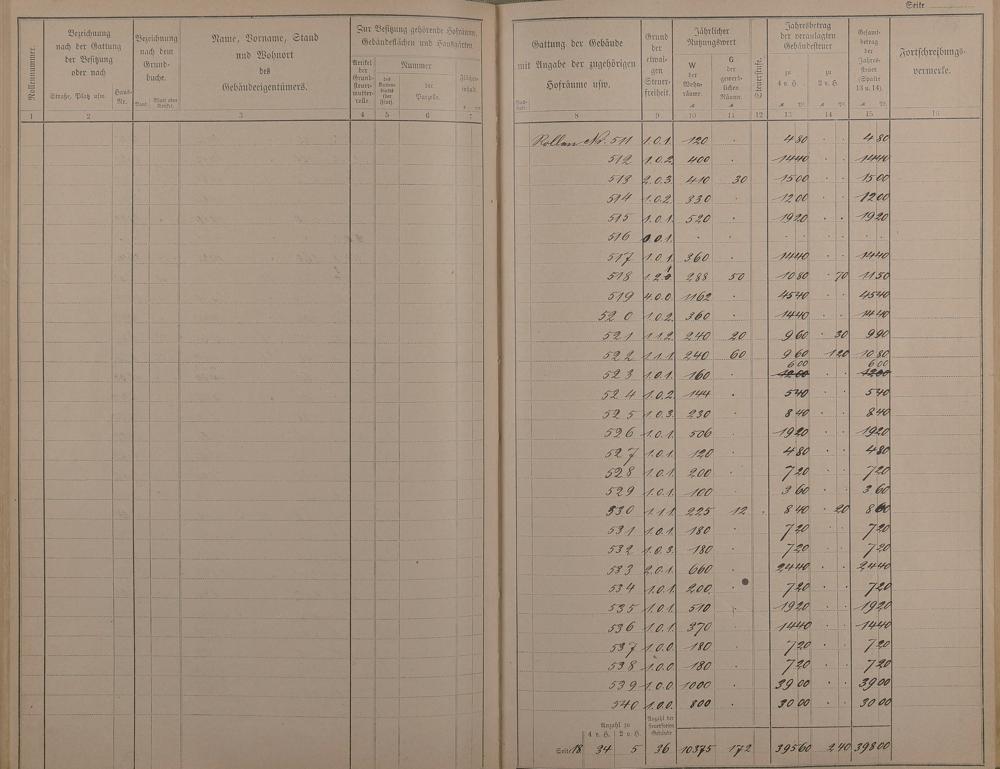 Seite
Rollennummer.
Bezeichnung
nach der Gattung
der Besitzung
oder nach
Straße, Platz usw.
Haus-
Nr.
Bezeichnung
nach dem
Grund-
buche.
Band.
Blatt oder
Artikel.
Name, Vorname, Stand
und Wohnort
des
Gebäudeeigentümers.
Zur Besitzung gehörende Hofräume,
Gebäudeflächen und Hausgärten
Artikel
der
Grund-
steuer-
mutter-
rolle
Nummer
des
Karten-
blattes
(der
Flur)
der
Parzelle.
Flächen-
inhalt.
1 2 3 4 5 6 7
Gattung der Gebäude
mit Angabe der zugehörigen
Hofräume usw.
Grund
der
etwai-
gen
Steuer-
freiheit.
Jährlicher
Nutzungswert
W
der
Wohn-
räume.
G
der
gewerb-
lichen
Räume.
Steuerstufe.
Jahresbetrag
der veranlagten
Gebäudesteuer
zu
4 v. H.
zu
2 v. H.
Gesamt-
betrag
der
Jahres-
steuer
(Spalte
13 u. 14).
Fortschreibungs-
vermerke.
8 9 10 11 12 13 14 15 16
Rollen No. 511 1.0.1. 120 · 4 80 · · 4 80
512 1.0.2. 400 · 14 40 · · 14 40
513 2.0.3. 410 30 15 00 · · 15 00
514 1.0.2. 330 · 12 00 · · 12 00
515 1.0.1. 520 · 19 20 · · 19 20
516 0.0.1. · · · · · ·
517 1.0.1. 360 · 14 40 · · 14 40
518 1.2. 288 50 10 80 · 70 11 50
519 4.0.0. 1162 · 45 40 · · 45 40
520 1.0.2. 360 · 14 40 · · 14 40
521 1.1.2. 240 20 9 60 · 30 9 90
522 1.1.1. 240 60 9 60 1 20 10 80
6 00 6 00
523 1.0.1. 160 · 12 00 · · 12 00
524 1.0.2. 144 · 5 40 · · 5 40
525 1.0.3. 230 · 8 40 · · 8 40
526 1.0.1. 506 · 19 20 · · 19 20
527 1.0.1. 120 · 4 80 · · 4 80
528 1.0.1. 200 · 7 20 · · 7 20
529 1.0.1. 100 · 3 60 · · 3 60
530 1.1.1. 225 12 8 40 · 20 8 60
531 1.0.1. 180 · 7 20 · · 7 20
532 1.0.3. 180 · 7 20 · · 7 20
533 2.0.1. 660 · 24 40 · · 24 40
534 1.0.1. 200. · 7 20 · · 7 20
535 1.0.1. 510 · 19 20 · · 19 20
536 1.0.1. 370 · 14 40 · · 14 40
537 1.0.0. 180 · 7 20 · · 7 20
538 1.0.0. 180 · 7 20 · · 7 20
539 1.0.0. 1000 · 39 00 · · 39 00
540 1.0.0. 800 · 30 00 · · 30 00
Anzahl zu
4 v. H. 2 v. H.
Anzahl der
steuerfreien
Gebäude
Seite 18 34 5 36 10375 172 395 60 2 40 398 00